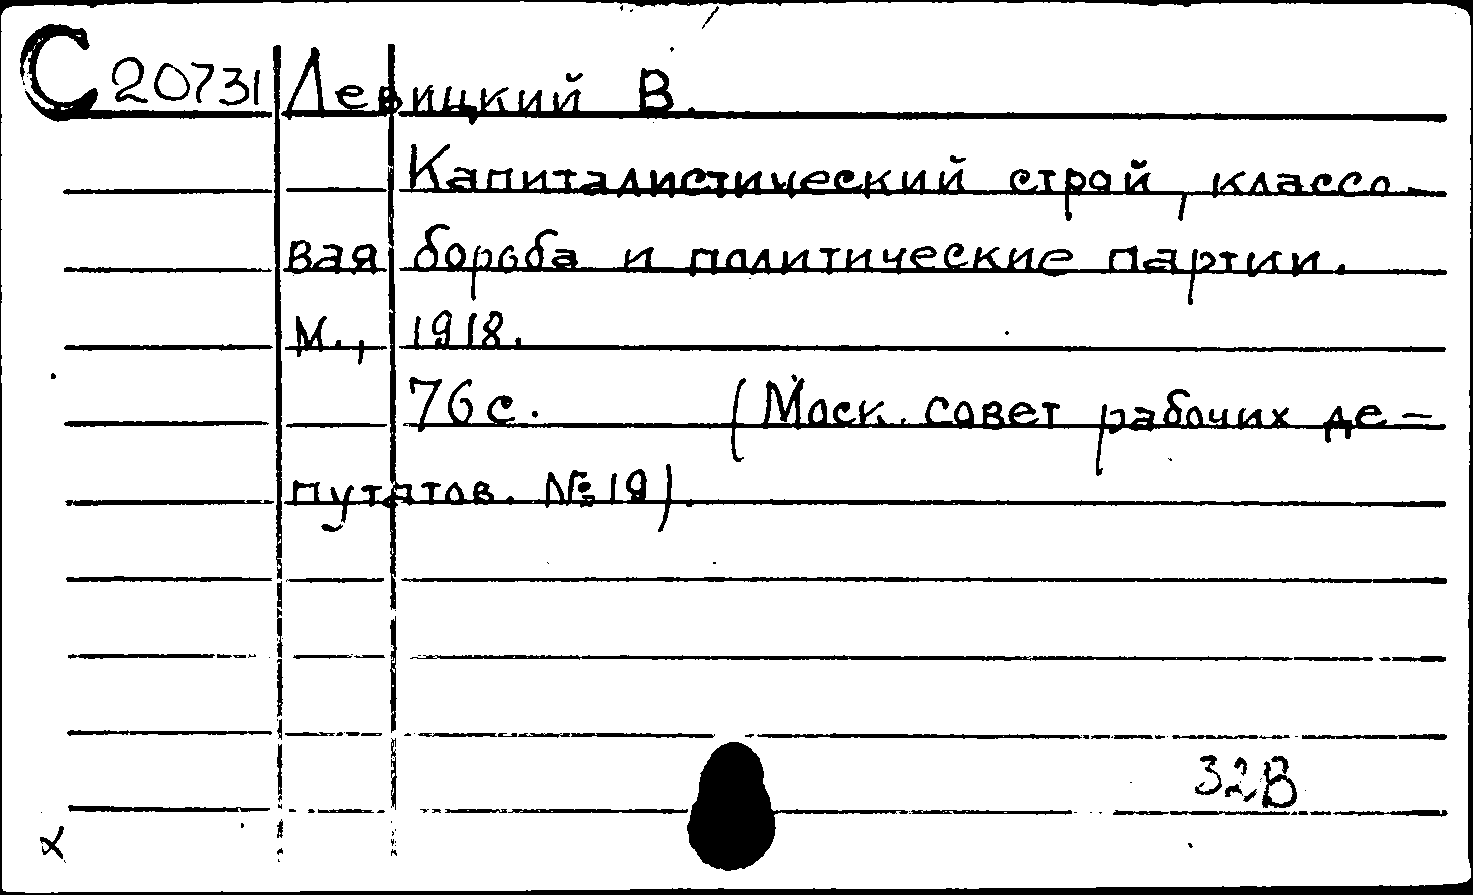 С 20731 Левицкий В.
Капиталистический строй, классо-
вая борьба и политические партии.
М., 1918.
76 с. (Моск. совет рабочих де-
путатов. № 19).
32В